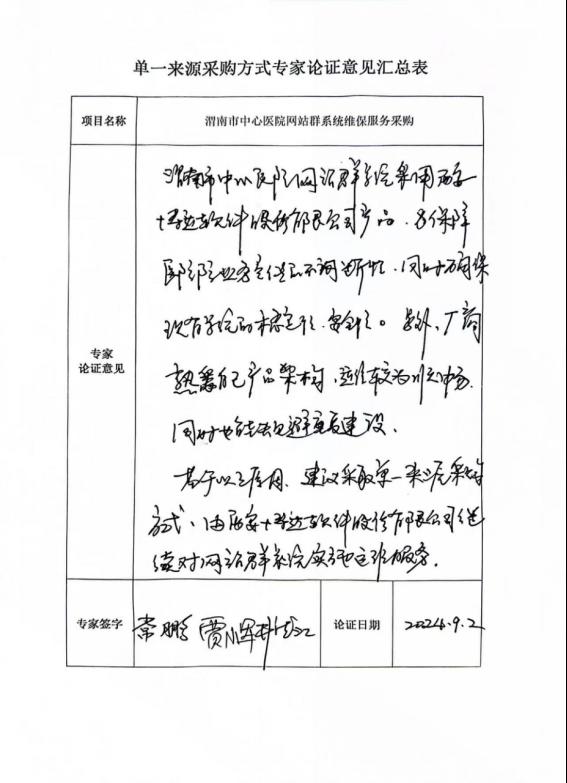 单一来源采购方式专家论证意见汇总表
项目名称
渭南市中心医院网站群系统维保服务采购
专家
论证意见
渭南市中心医院网站群系统采用西安
博达软件股份有限公司产品,为保障
医院业务宣传不间断性,同时确保
现有系统的稳定性、安全性。另外,厂商
熟悉自己产品架构,运维较为
同时也能避免重复建设。
基于以上原因,建议采取单一来源采购
方式,由西安博达软件股份有限公司继
续对网站群系统实施运维服务。
专家签字
常鹏 贾小军
论证日期
2024.9.2